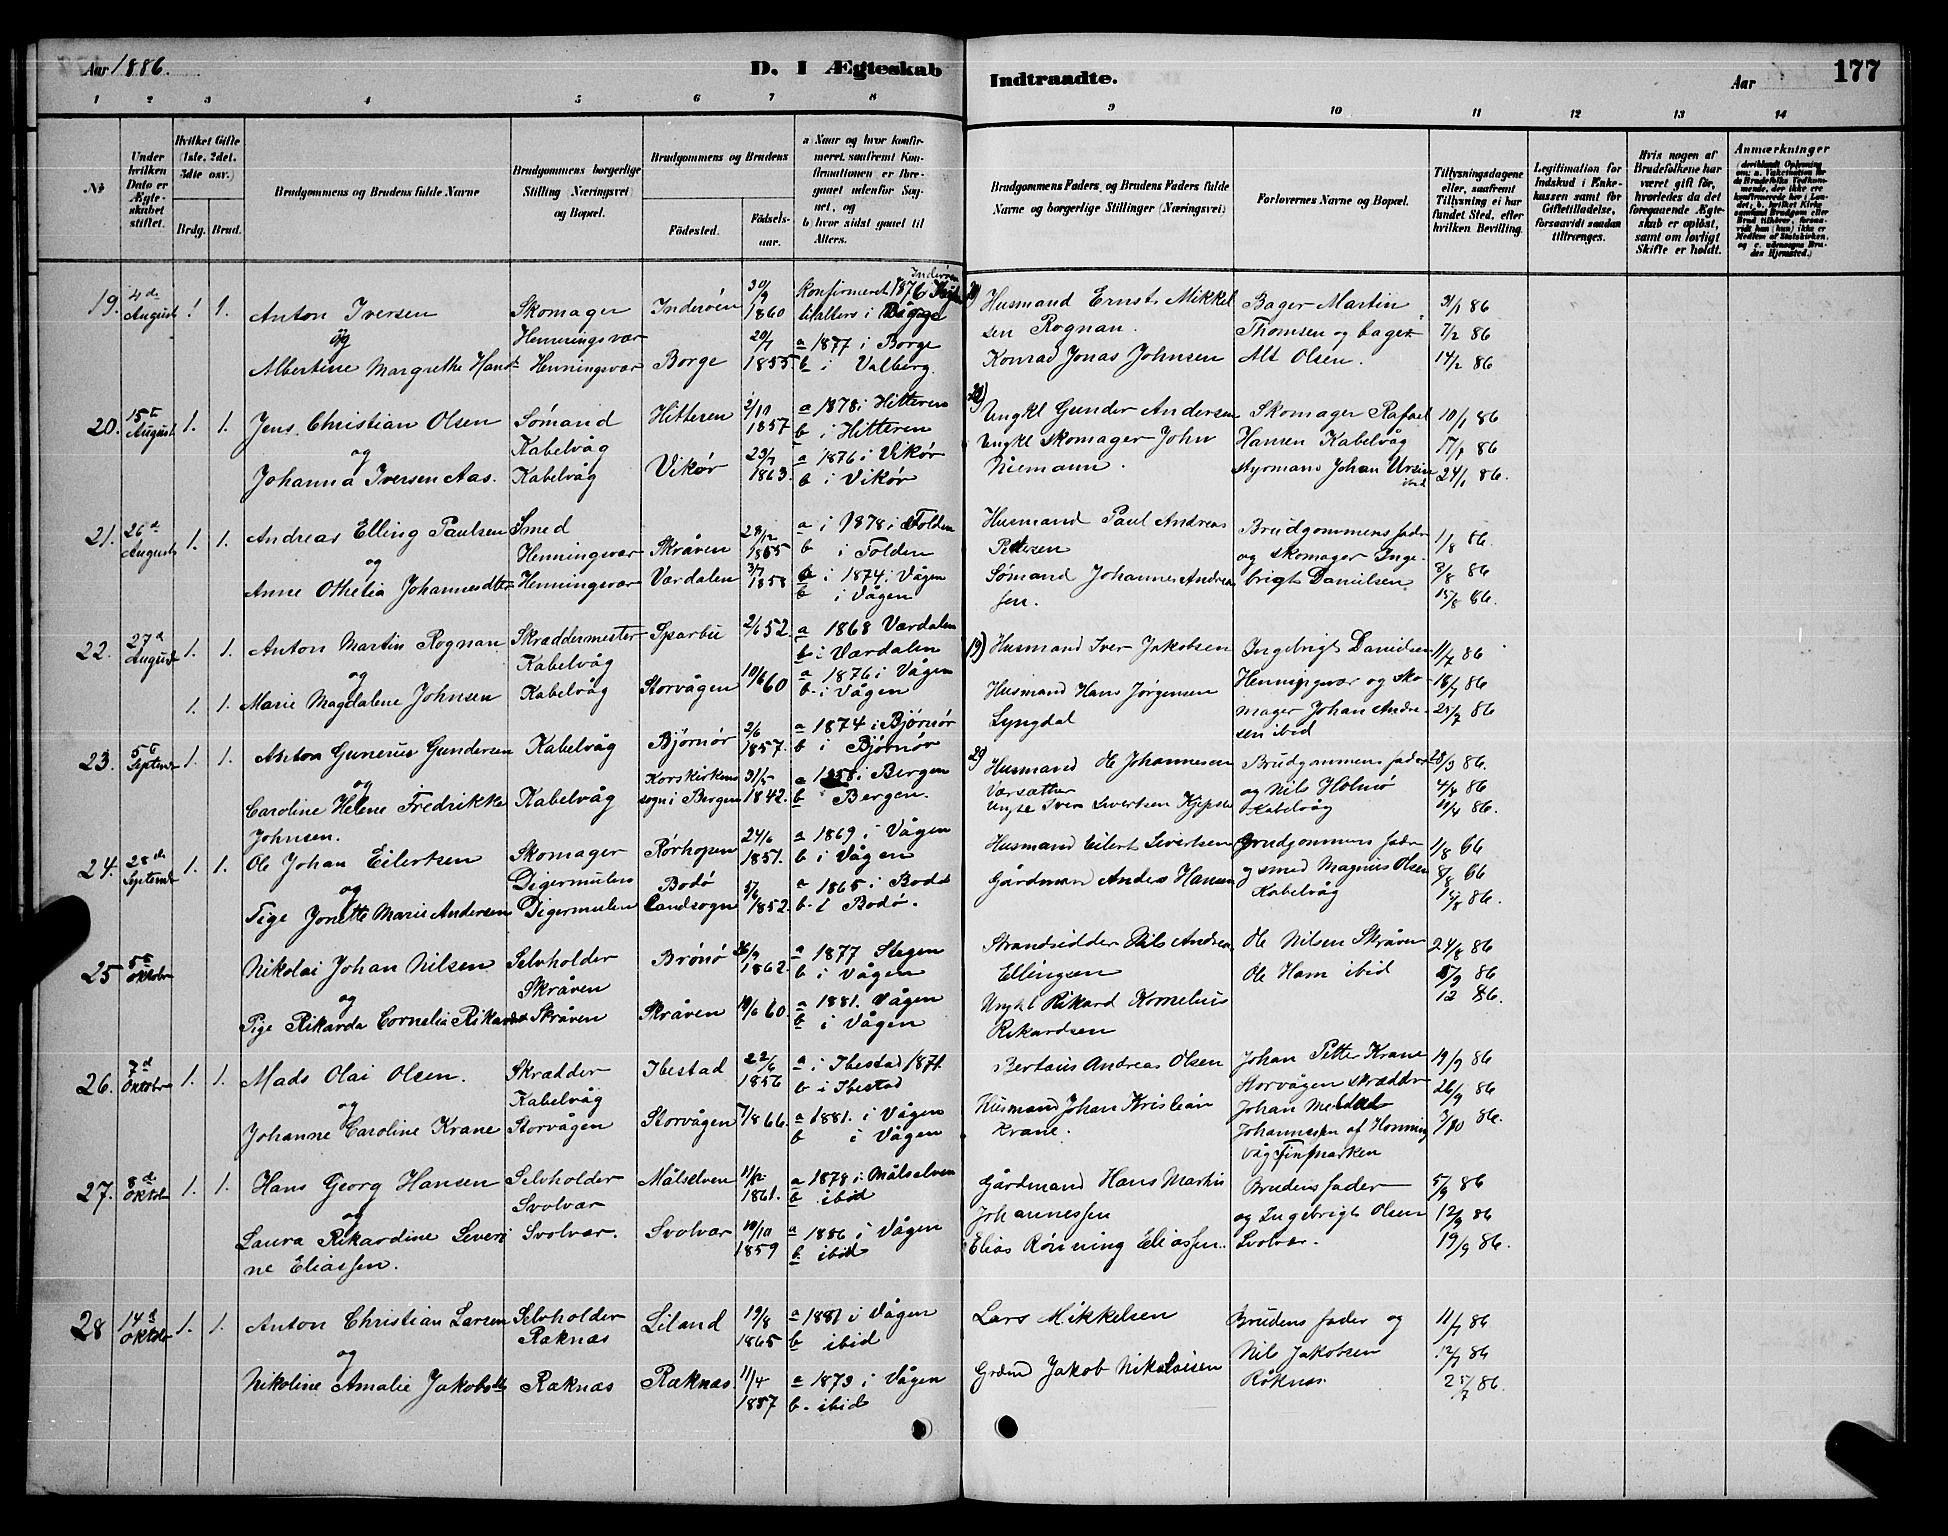 Aar 1886.
D. I Ægteskab
Indtraadte.
Aar
177
1 2 3 4 5 6 7 8 9 10 11 12 13 14
No
Under hvilken Dato er Ægteskabet stiftet.
Hvilket Gifte (1ste, 2det, 3die osv.)
Brdg. Brud.
Brudgommens og Brudens fulde Navne
Brudgommens borgerlige Stilling (Næringsvei) og Bopæl.
Brudgommens og Brudens
Fødested. Fødselsaar.
a Naar og hvor konfirmeret, saafremt Konfirmationen er foregaaet udenfor Sognet, og
b hvor sidst gaaet til Alters.
Brudgommens Faders, og Brudens Faders fulde Navne og borgerlige Stillinger (Næringsvei)
Forlovernes Navne og Bopæl.
Tillysningsdagene eller, saafremt Tillysning ei har fundet Sted, efter hvilken Bevilling.
Legitimation for Indskud i Enkekassen samt for Giftetilladelse, forsaavidt saadan tiltrænges.
Hvis nogen af Brudefolkene har været gift før, hvorledes da det foregaaende Ægteskab er opløst, samt om lovligt Skifte er holdt.
Anmærkninger
19. 4de August 1 1. Anton Iversen Skomager Inderøen 30/9 1860 Konfirmeret 1876 Inderøen Husmand Ernst Mikkel Bager Martin 31/1 86
og Henningsvær sen Rognan. Thomsen og bager 7/2 86
Albertine Margrethe Hansdt Henningsvær Borge 20/7 1855 a 1877 i Borge b i Valberg. Konrad Jonas Johnsen Alt Olsen. 14/2 86
20. 15de August 1. 1. Jens Christian Olsen Sømand Hitteren 2/10 1857 a 1878 i Hitteren Ungkl Gunder Andersen Skomager Rafael 10/1 86
og Kabelvåg b i Hitteren Ungkl skomager John Hansen Kabelvåg 17/1 86
Johanna Iversen Aas. Kabelvåg Vikør 23/7 1863. a 1876 i Vikør b i Vikør Niemann. styrmand Johan Ursin ibid 24/1 86.
21. 26de August 1. 1. Andreas Elling Paulsen Smed Skråven 28/12 1855 a i 1878 i Folden Husmand Paul Andreas Brudgommens fader 1/8 86.
og Henningsvær b i Folden Pettersen og skomager Inge- 8/8 86
Anne Othelia Johannesdtter Henningsvær Værdalen 3/7 1858 a i 1874 i Vågen b i Vågen Sømand Johannes Andreas sen. brigt Danielsen 15/8 86.
22. 27de August 1. 1. Anton Martin Rognan Skræddermester Sparbu 2/6 52. a 1868 Værdalen Husmand Iver Jakobsen Ingebrigt Danielsen 11/7 86
og Kabelvåg b i Værdalen Henningsvær og sko- 18/7 86
1. 1. Marie Magdalene Johnsen Kabelvåg Storvågen 10/6 60 a 1876 i Vågen b. i Vågen Husmand Hans Jørgensen Lyngdal mager Johan Andresen ibid 25/7 86
23. 5te Septembr 1. 1. Anton Gunerius Gundersen Kabelvåg Bjørnør 2/6 1857. a 1874 i Bjørnør b i Bjørnør Husmand Ole Johannesen Brudgommens fader 28/3 86.
og Værsætter og Nils Holmø 4/4 86
Caroline Helene Fredrikke Johnsen. Kabelvåg Korskirkens sogn i Bergen 31/5 1842. a 1858 i Bergen b Bergen. Kabelvåg 11/4 86.
24. 28de Septembr 1. 1. Ole Johan Eilertsen Skomager Rørhopen 24/6 1851. a 1869 i Vågen b i Vågen Husmand Eilert Sivertsen Brudgommens fader 1/8 86
og Digermulen og smed Magnus Olsen 8/8 86
Pige Jonette Marie Andersen Digermulen Bodø Landsogn 5/6 1852. a 1865 i Bodø b. i Bodø. Gårdmand Anders Hansen Kabelvåg 15/8 86.
25 5te Oktober Nikolai Johan Nilsen Selvholder Brønø 26/9 1862. a 1877 Stegen b i Vågen Strandsidder Nils Andreas Ellingsen Ole Nilsen Skråven 24/8 86
og Skråven Ole Ham ibid 5/9 86
Pige Rikarda Cornelia Rikardsdt Skråven Skråven 19/6 60. a 1881. Vågen b i Vågen Ungkl Rikard Kornelius Rikardsen 12 86.
26. 7de Oktober 1. 1. Mads Olai Olsen. Skrædder Ibestad 22/6 1856 a i Ibestad 1871. b i Ibestad Bertæus Andreas Olsen Johan Petter Krane 19/9 86
og Kabelvåg Storvågen skrædder 26/9 86
Johanne Caroline Krane Storvågen Storvågen 7/8 66. a 1881. i Vågen b i Vågen Husmand Johan Kristian Krane. Johan 3/10 86.
Johannessen af Honning
våg Finmarken
27. 8de Oktober 1. 1. Hans Georg Hansen Selvholder Målselven 11/12 1861. a 1878 i Målselven b ibid Gårdmand Hans Martin Johannessen Brudens fader 5/9 86
og Svolvær og Ingebrigt Olsen 12/9 86
Laura Rikardine Severine Eliassen. Svolvær. Svolvær 19/10 1859 a 1886 i Vågen b ibid Elias Rønning Eliassen. Svolvær. 19/9 86.
28 14de Oktober 1. 1. Anton Christian Larsen Selvholder Liland 19/8 1865 a 1881 i Vågen b ibid Lars Mikkelsen Brudens fader og 11/7 86
og Raknæs Nils Jakobsen 12/7 86
Nikoline Amalie Jakobsdt Raknæs Raknæs 11/4 1857 a 1873 i Vågen b. ibid Jakob Nikolaisen Raknæs 25/7 86.